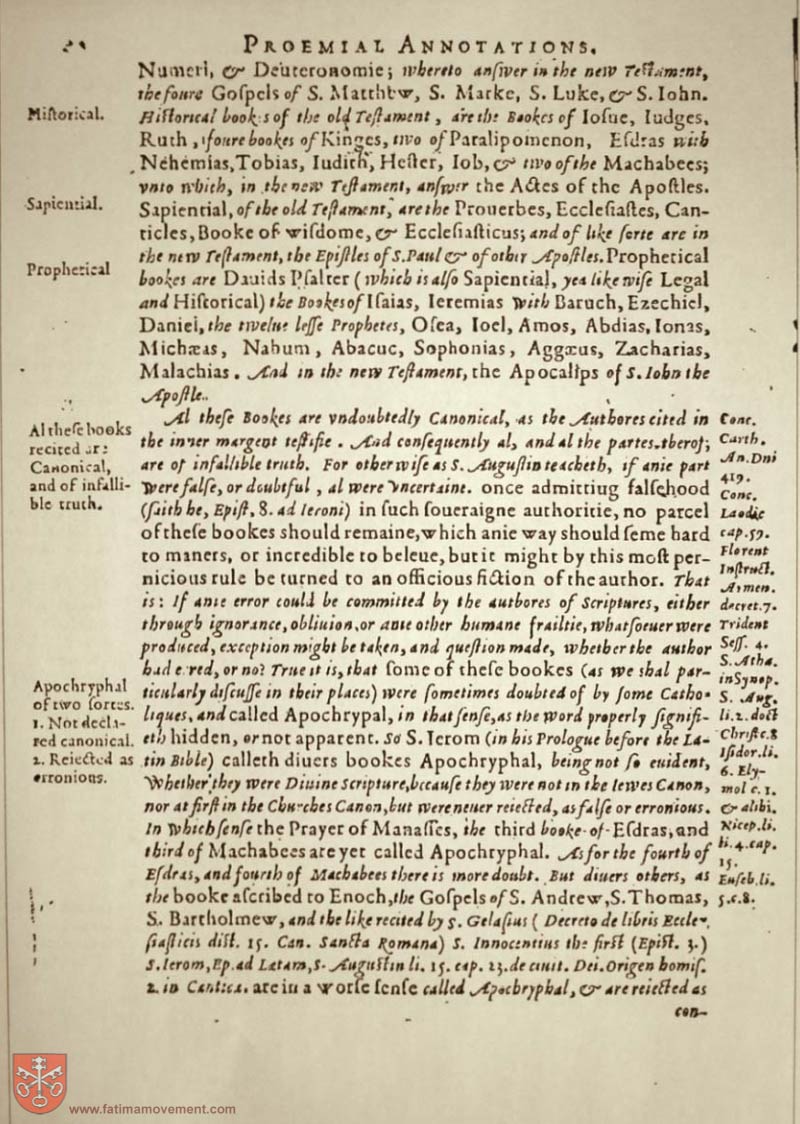 PROEMIAL ANNOTATIONS.
Numeri, & Deuteronomie; whereto anſwer in the new Teſtament,
the foure Goſpels of S. Matthew, S. Marke, S. Luke, & S. Iohn.
Hiſtorical.
Hiſtorical bookes of the old Teſtament, are the Bookes of Ioſue, Iudges,
Ruth, foure bookes of Kinges, two of Paralipomenon, Eſdras with
Nehemias, Tobias, Iudith, Heſter, Iob, & two of the Machabees;
vnto which, in the new Teſtament, anſwer the Actes of the Apoſtles.
Sapiential.
Sapiential, of the old Teſtament, are the Prouerbes, Eccleſiaſtes, Can-
ticles, Booke of wiſdome, & Eccleſiaſticus; and of like ſorte are in
the new Teſtament, the Epiſtles of S. Paul & of other Apoſtles. Prophetical
Prophetical
bookes are Dauids Pſalter (which is alſo Sapiential, yea likewiſe Legal
and Hiſtorical) the Bookes of Iſaias, Ieremias with Baruch, Ezechiel,
Daniel, the twelue leſſe Prophetes, Oſea, Ioel, Amos, Abdias, Ionas,
Michæas, Nahum, Abacuc, Sophonias, Aggæus, Zacharias,
Malachias. And in the new Teſtament, the Apocalips of S. Iohn the
Apoſtle.
Al theſe Bookes are vndoubtedly Canonical, as the Authores cited in
the inner margent teſtifie. And conſequently al, and al the partes therof;
are of infallible truth. For otherwiſe as S. Auguſtin teacheth, if anie part
were falſe, or doubtful, al were vncertaine. once admittiug falſehood
(ſaith he, Epiſt. 8. ad Ieroni) in ſuch ſoueraigne authoritie, no parcel
of theſe bookes ſhould remaine, which anie way ſhould ſeme hard
to maners, or incredible to beleue, but it might by this moſt per-
nicious rule be turned to an officious fiction of the author. That
is: If anie error could be committed by the authores of Scriptures, either
through ignorance, obliuion, or anie other humane frailtie, whatſoeuer were
produced, exception might be taken, and queſtion made, whether the author
had erred, or no? True it is, that ſome of theſe bookes (as we ſhal par-
ticularly diſcuſſe in their places) were ſometimes doubted of by ſome Catho-
liques, and called Apochrypal, in that ſenſe, as the word properly ſignifi-
eth hidden, or not apparent. So S. Ierom (in his Prologue before the La-
tin Bible) calleth diuers bookes Apochryphal, being not ſo euident,
Whether they were Diuine Scripture, becauſe they were not in the Iewes Canon,
nor at firſt in the Churches Canon, but were neuer reiected, as falſe or erronious.
In which ſenſe the Prayer of Manaſſes, the third booke of Eſdras, and
third of Machabees are yet called Apochryphal. As for the fourth of
Eſdras, and fourth of Machabees there is more doubt. But diuers others, as
the booke aſcribed to Enoch, the Goſpels of S. Andrew, S. Thomas,
S. Bartholmew, and the like recited by S. Gelaſius (Decreto de libris Eccle-
ſiaſticis diſt. 15. Can. Sancta Romana) S. Innocentius the firſt (Epiſt. 3.)
S. Ierom, Ep. ad Lætam, S. Auguſtin li. 15. cap. 23. de ciuit. Dei. Origen homiſ.
2. in Cantica. are in a worſe ſenſe called Apochryphal, & are reiected as
con-
Al theſe books
recited are
Canonical,
and of infalli-
ble truth.
Apochryphal
of two ſortes.
1. Not decla-
red canonical.
2. Reiected as
erronious.
Conc.
Carth.
An. Dni
419.
Conc.
Laodic
cap. 59.
Florent
Inſtruct.
Armen.
decret. 7.
Trident
Seſſ. 4.
S. Atha.
in Synop.
S. Aug.
li. 2. doct
Chriſtc. 8
Iſidor. li.
6. Ety-
mol c. 1.
& alibi.
Nicep. li.
li. 4. cap.
15.
Euſeb. li.
5. c. 8.
www.fatimamovement.com